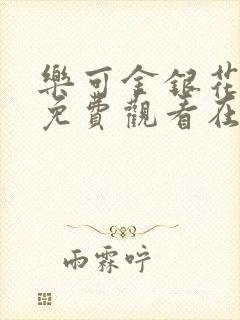 樂可金銀花
免費觀看在
雨霖咛